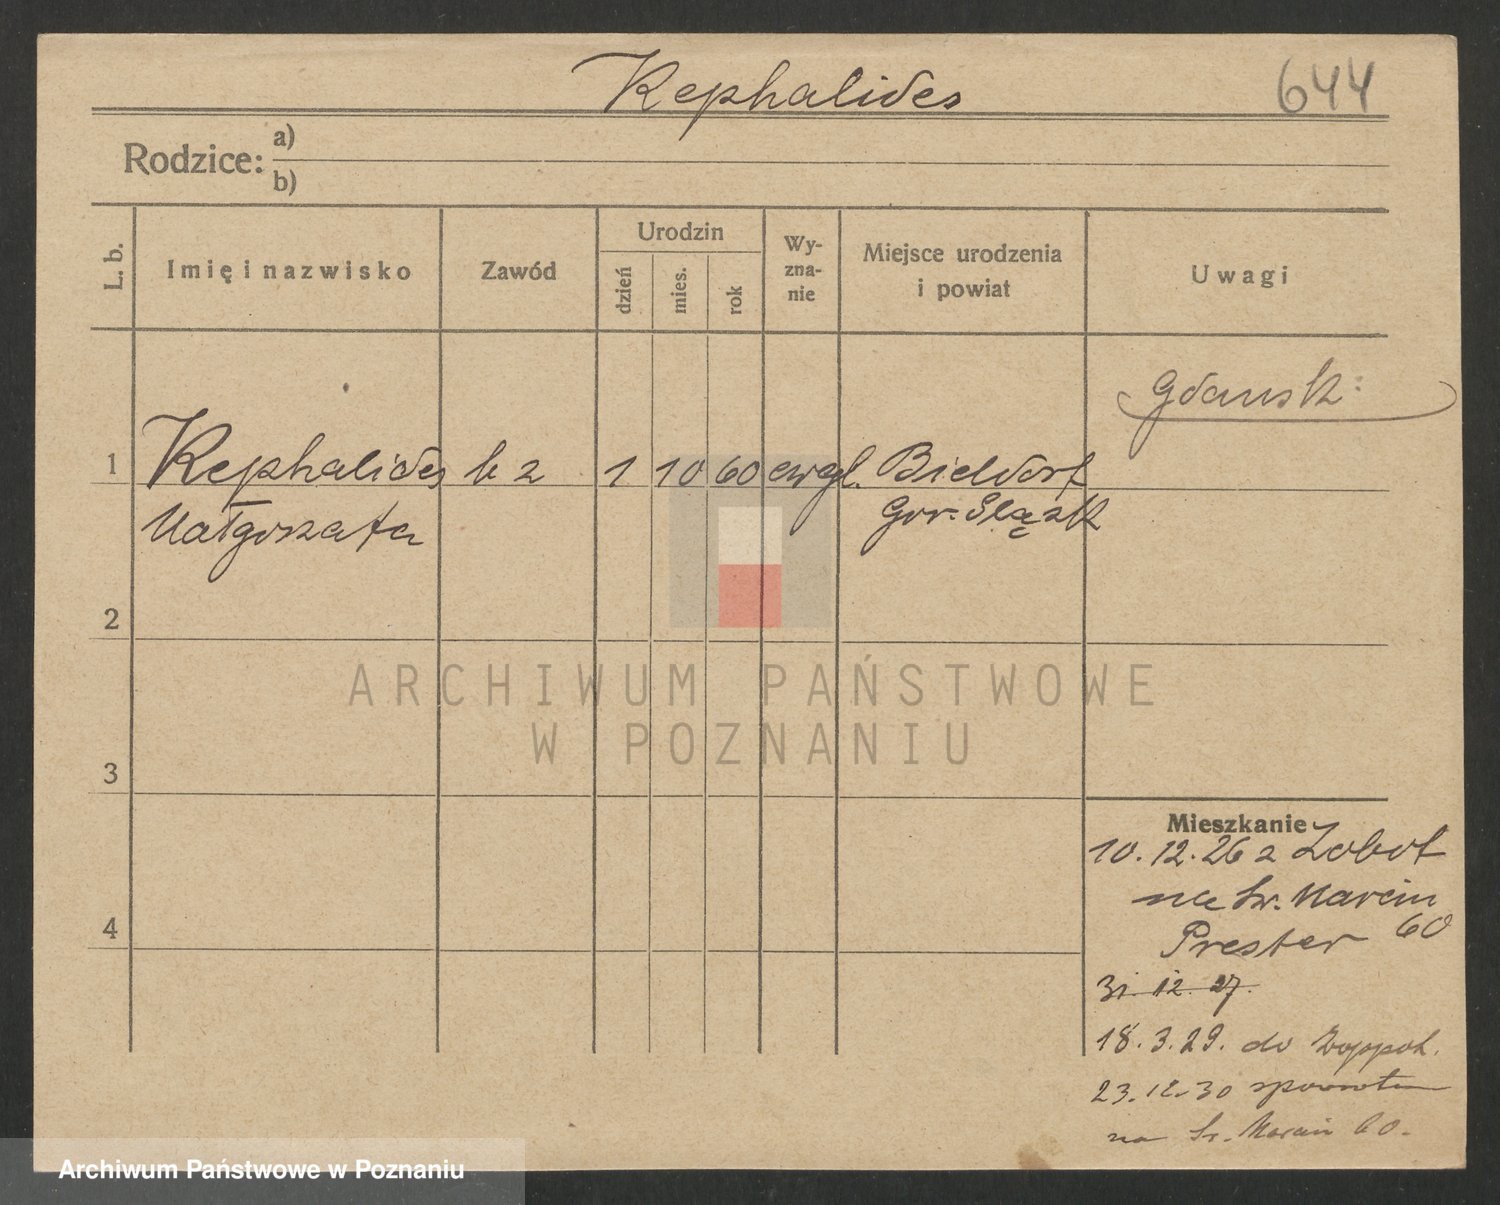 Kephalides
644
Rodzice:
a)
b)
L. b.
Imię i nazwisko
Zawód
Urodzin
dzień
mies.
rok
Wy-
zna-
nie
Miejsce urodzenia
i powiat
Uwagi
Gdańsk
1
Kephalides b z 1 10 60 ewgl. Bieldorf
Małgorzata Gór. Śląsk
2
ARCHIWUM PAŃSTWOWE
W POZNANIU
3
Mieszkanie
10.12.26 z Zobot
na Św. Marcin
60
Prester
4
31. 12. 27.
18.3.29. do Zoppot.
23.12.30 spowrotem
na Św. Marcin 60.
Archiwum Państwowe w Poznaniu